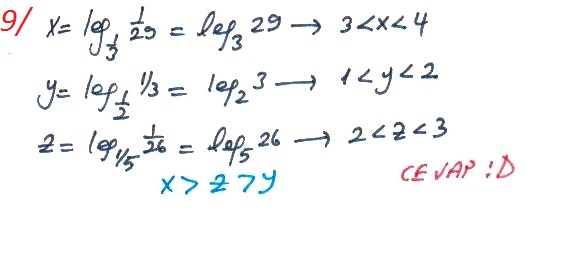 9/ x = log_{1/3} 1/29 = log_3 29 → 3 < x < 4
y = log_{1/2} 1/3 = log_2 3 → 1 < y < 2
z = log_{1/5} 1/26 = log_5 26 → 2 < z < 3
x > z > y CEVAP : D